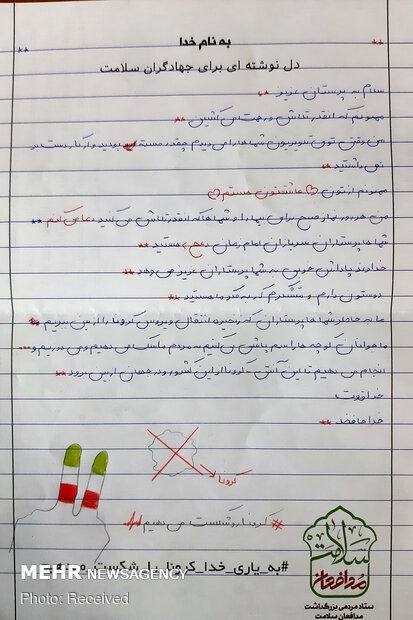 به نام خدا
دل نوشته ای برای جهادگران سلامت
سلام به پرستاران عزیز
ممنونم که انقدر تلاش و زحمت می کشین
من وقتی توی تلویزیون شما ها را می دیدم چقدر خسته بودید و از کار دست بر
نمی داشتید
ممنونم ازتون عاشقتون هستم
من هر روز نماز صبح برای بیمارا و شما ها که انقدر تلاش می کنید دعا می کنم
شما پرستاران سربازان امام زمان (عج) هستید
خداوند پاداش خوبی به شما پرستاران عزیز می دهد
دوستون دارم و متشکرم که به فکر ما هستید
ما به خاطر شما ها پرستاران که زنجیره انتقال ویروس کرونا را از بین ببریم
ما جوانان کوچه ها را سم پاشی می کنیم به مردم ماسک می دهیم و می دوزیم و...
انجام می دهیم تا این کرونا از این کشور و در جهان از بین برود
خدا قوت
خدا حافظ
کرونا
#کرونا رو شکست می دهیم
#به_یاری_خدا_کرونا_را_شکست
سلامت
مدافعان
ستاد مردمی بزرگداشت
مدافعان سلامت
MEHR NEWSAGENCY
Photo: Received